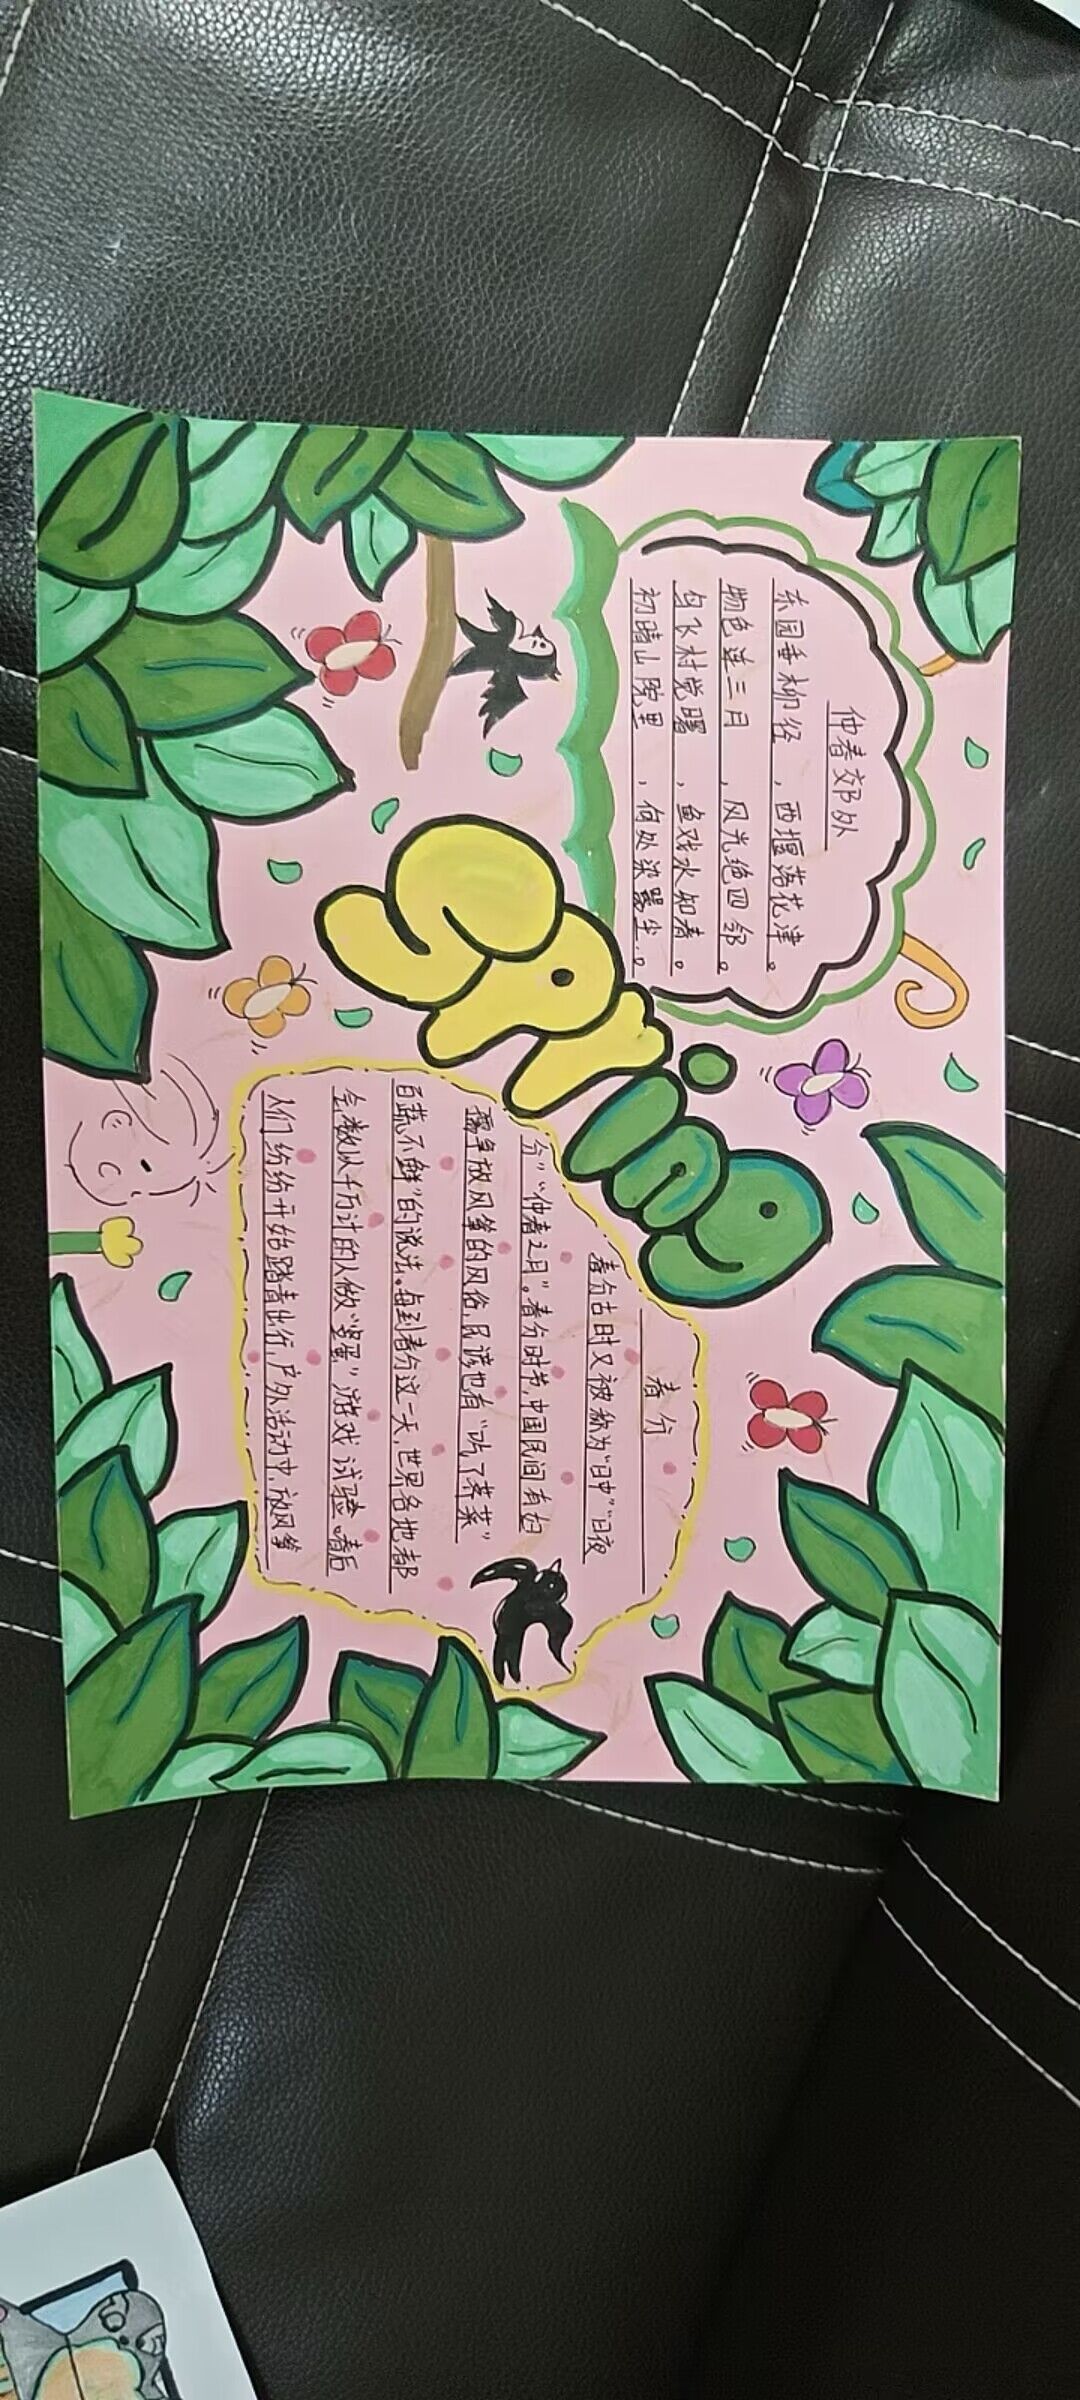 仲春郊外
东园垂柳径，西堰落花津。
物色连三月，风光绝四邻。
鸟飞村觉曙，鱼戏水知春。
初晴山院里，何处染嚣尘。
春分
春分古时又被称为“日中”“日夜
分”“仲春之月”。春分时节，中国民间有妇
孺争放风筝的风俗，民谚也有“吃了荠菜”
百蔬不鲜”的说法。每到春分这一天，世界各地都
会数以千万计的人做“竖蛋”游戏试验。春后
人们纷纷开始踏青出行，户外活动中，放风筝